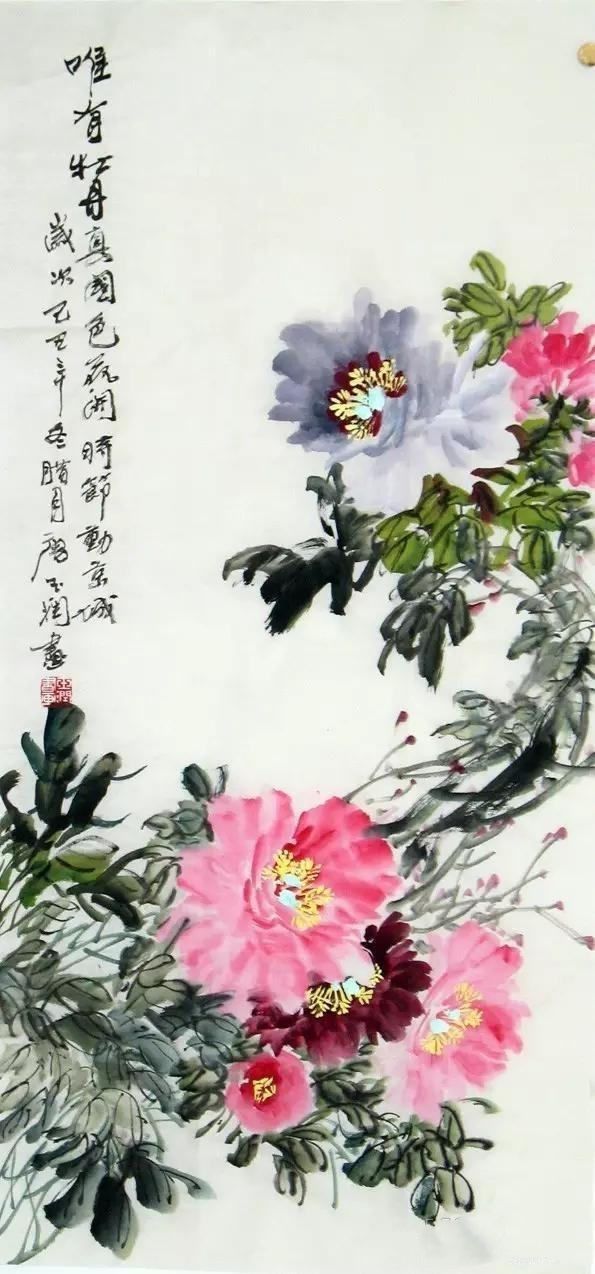 唯有牡丹真國色花開時節動京城
歲次己丑年冬臘月玉潤畫
玉潤書畫